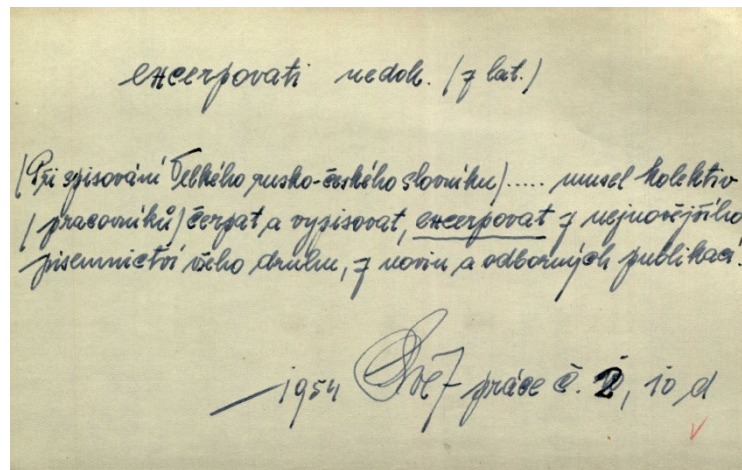 excerpovati nedok. (z lat.)
(Při spisování Velkého rusko-českého slovníku)..... musel kolektiv
(pracovníků) čerpat a vypisovat, excerpovat z nejnovějšího
písemnictví všeho druhu, z novin a odborných publikací.
1954 práce č. 2, 10 d